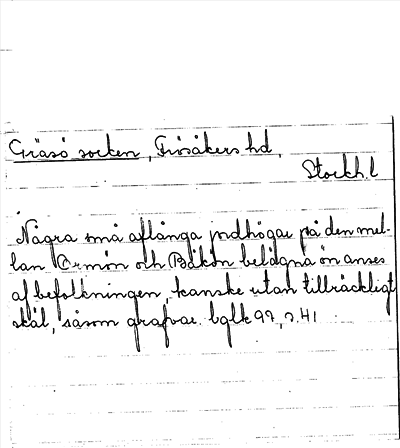 Gräsö socken, Frösåkers hd,
Stockh. l
Några små aflånga jordhögar på den mel-
lan Ormön och Båkön belägna ön anses
af befolkningen, kanske utan tillräckligt
skäl, såsom grafvar. bglk 99, s. 41